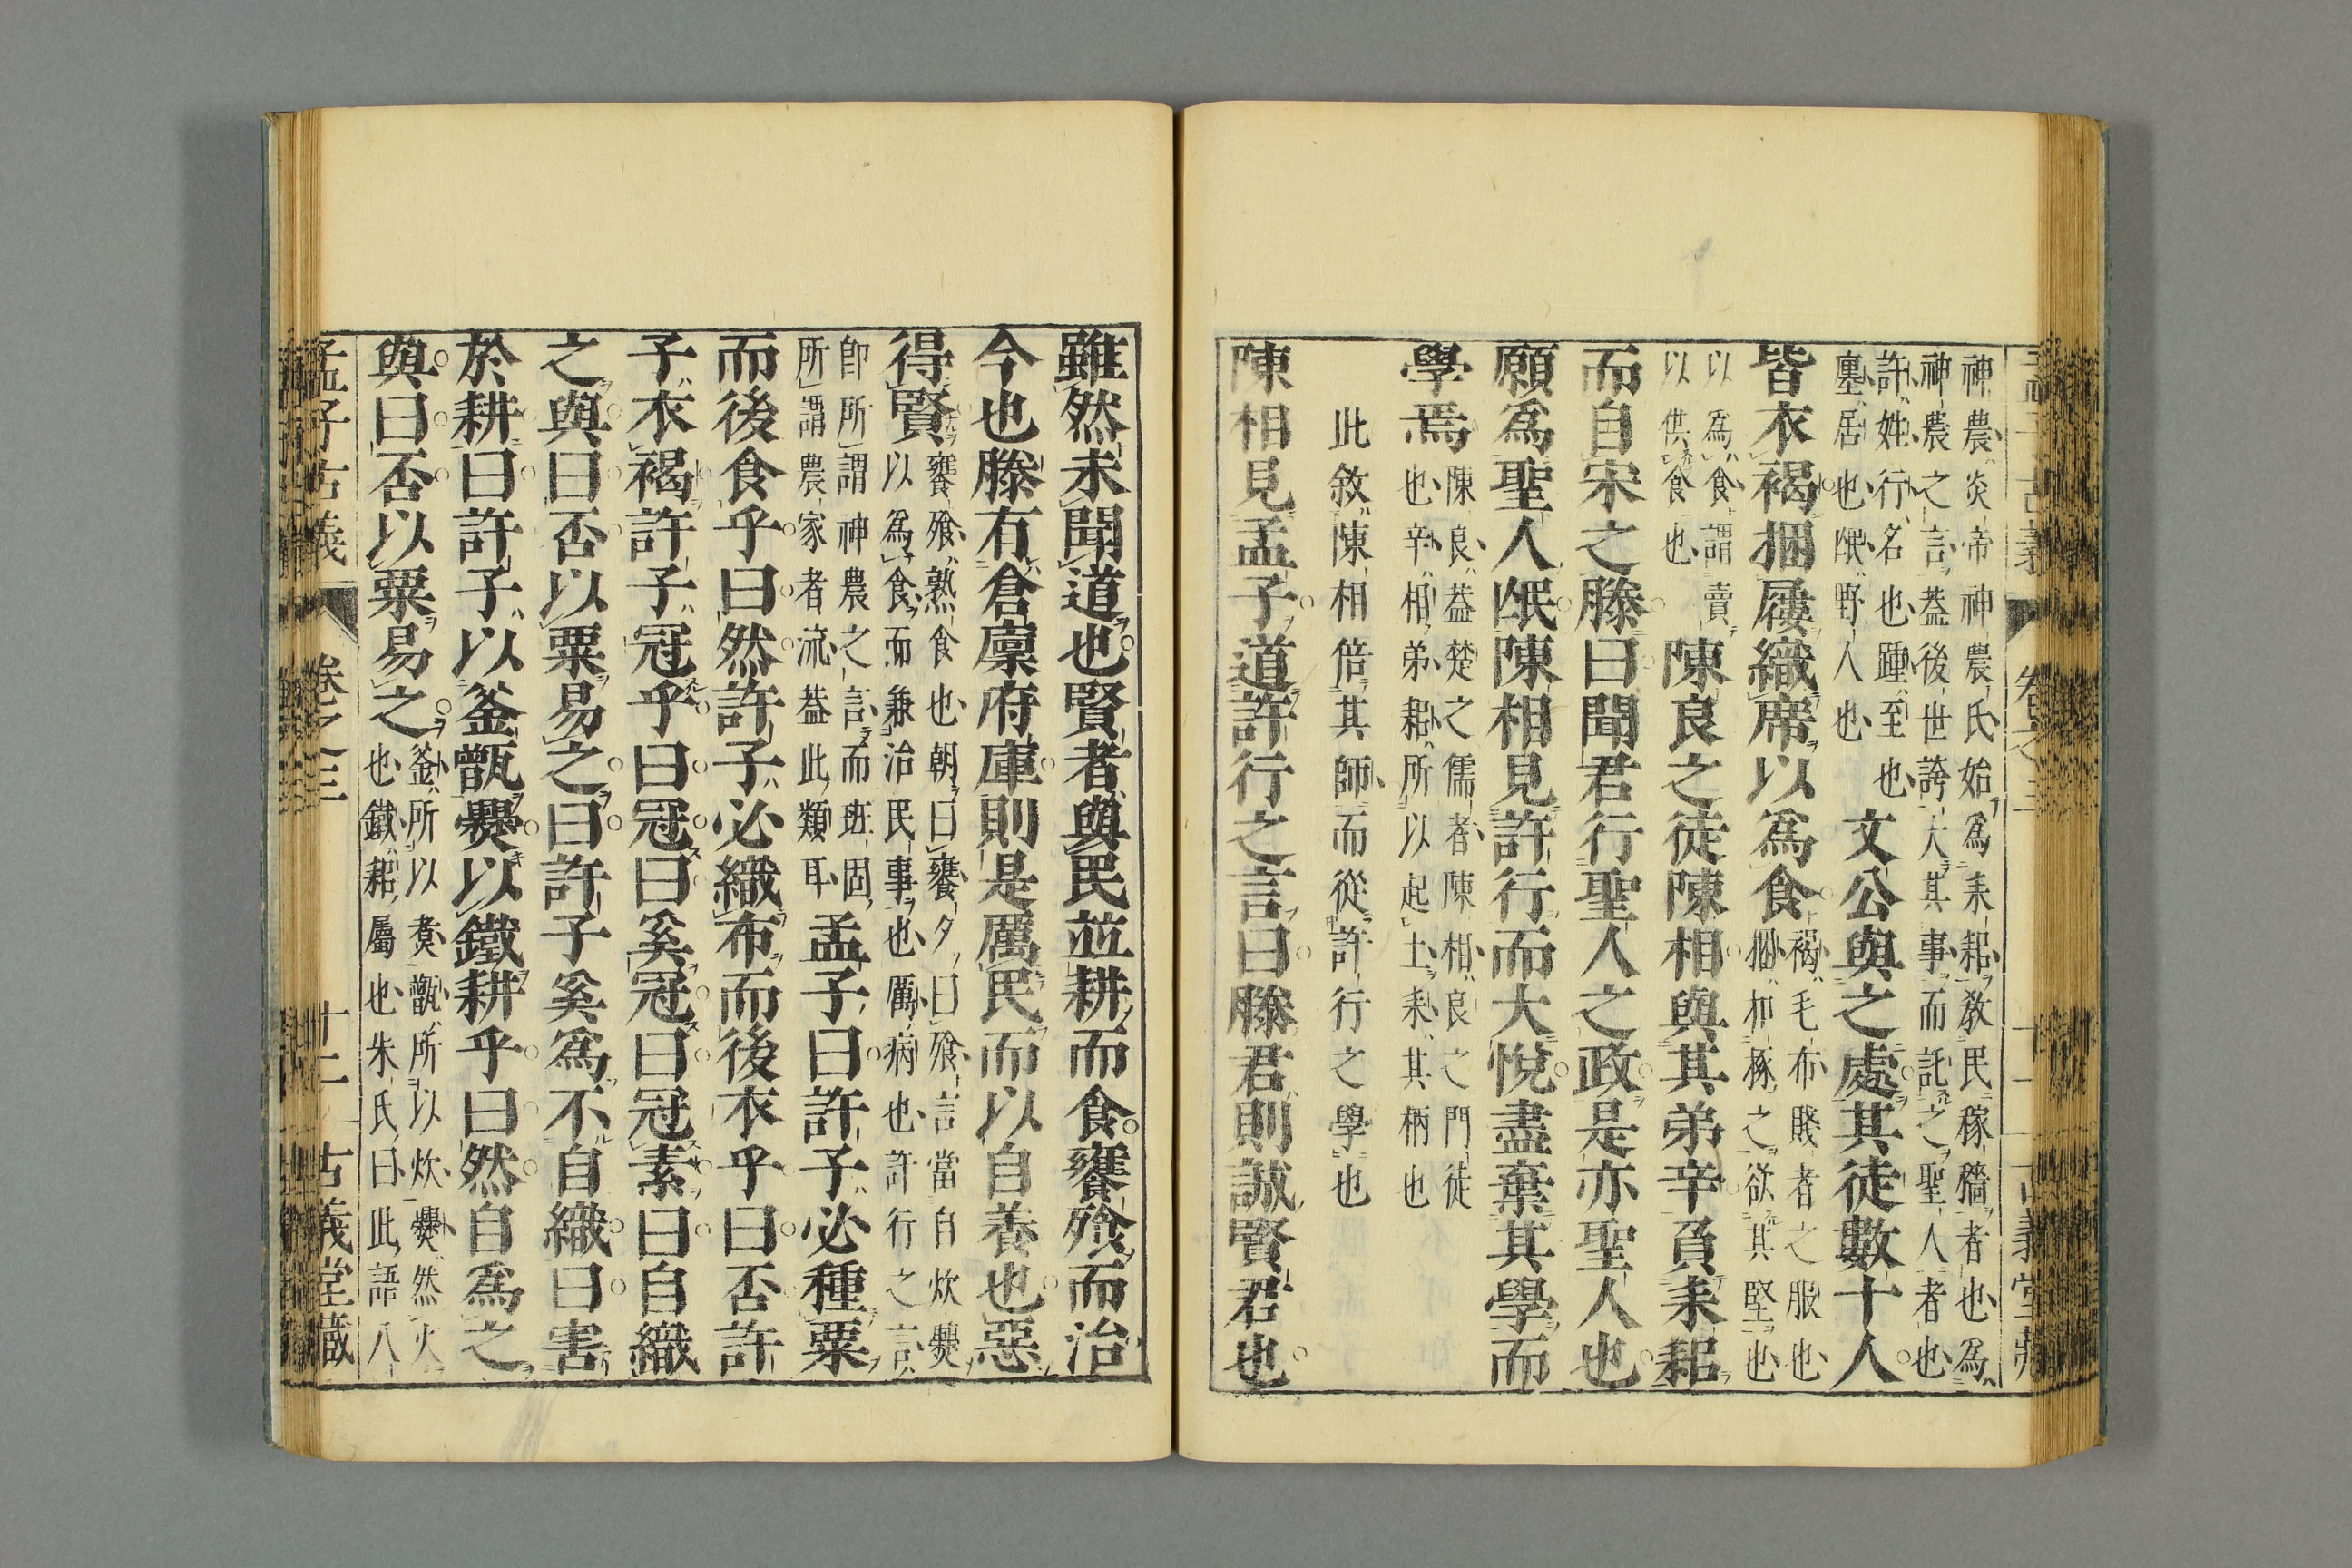 神農炎帝神農氏始爲耒耜教民稼穡者也爲
神農之言蓋後世誇大其事而託之聖人者也
許姓行名也踵至也
廛居也氓野人也
文公與之處其徒數十人
皆衣褐捆屨織席以爲食
褐毛布賤者之服也
捆扣㧻之欲其堅也
以爲食謂賣
以供食也
陳良之徒陳相與其弟辛負耒耜
而自宋之滕曰聞君行聖人之政是亦聖人也
願爲聖人氓陳相見許行而大悅盡棄其學而
學焉
陳良蓋楚之儒者陳相良之門徒
也辛相弟耜所以起土耒其柄也
此敘陳相倍其師而從許行之學也
陳相見孟子道許行之言曰滕君則誠賢君也
雖然未聞道也賢者與民並耕而食饔飱而治
今也滕有倉廩府庫則是厲民而以自養也惡
得賢
饔飱熟食也朝曰饔夕曰飱言當自炊爨
以爲食而兼治民事也厲病也許行之言
卽所謂神農之言而班固
所謂農家者流蓋此類耳
孟子曰許子必種粟
而後食乎曰然許子必織布而後衣乎曰否許
子衣褐許子冠乎曰冠曰奚冠曰冠素曰自織
之與曰否以粟易之曰許子奚爲不自織曰害
於耕曰許子以釜甑爨以鐵耕乎曰然自爲之
與曰否以粟易之
釜所以煑甑所以炊爨然火
也鐵耜屬也朱氏曰此語八
孟子古義 卷之三 廿二 古義堂藏